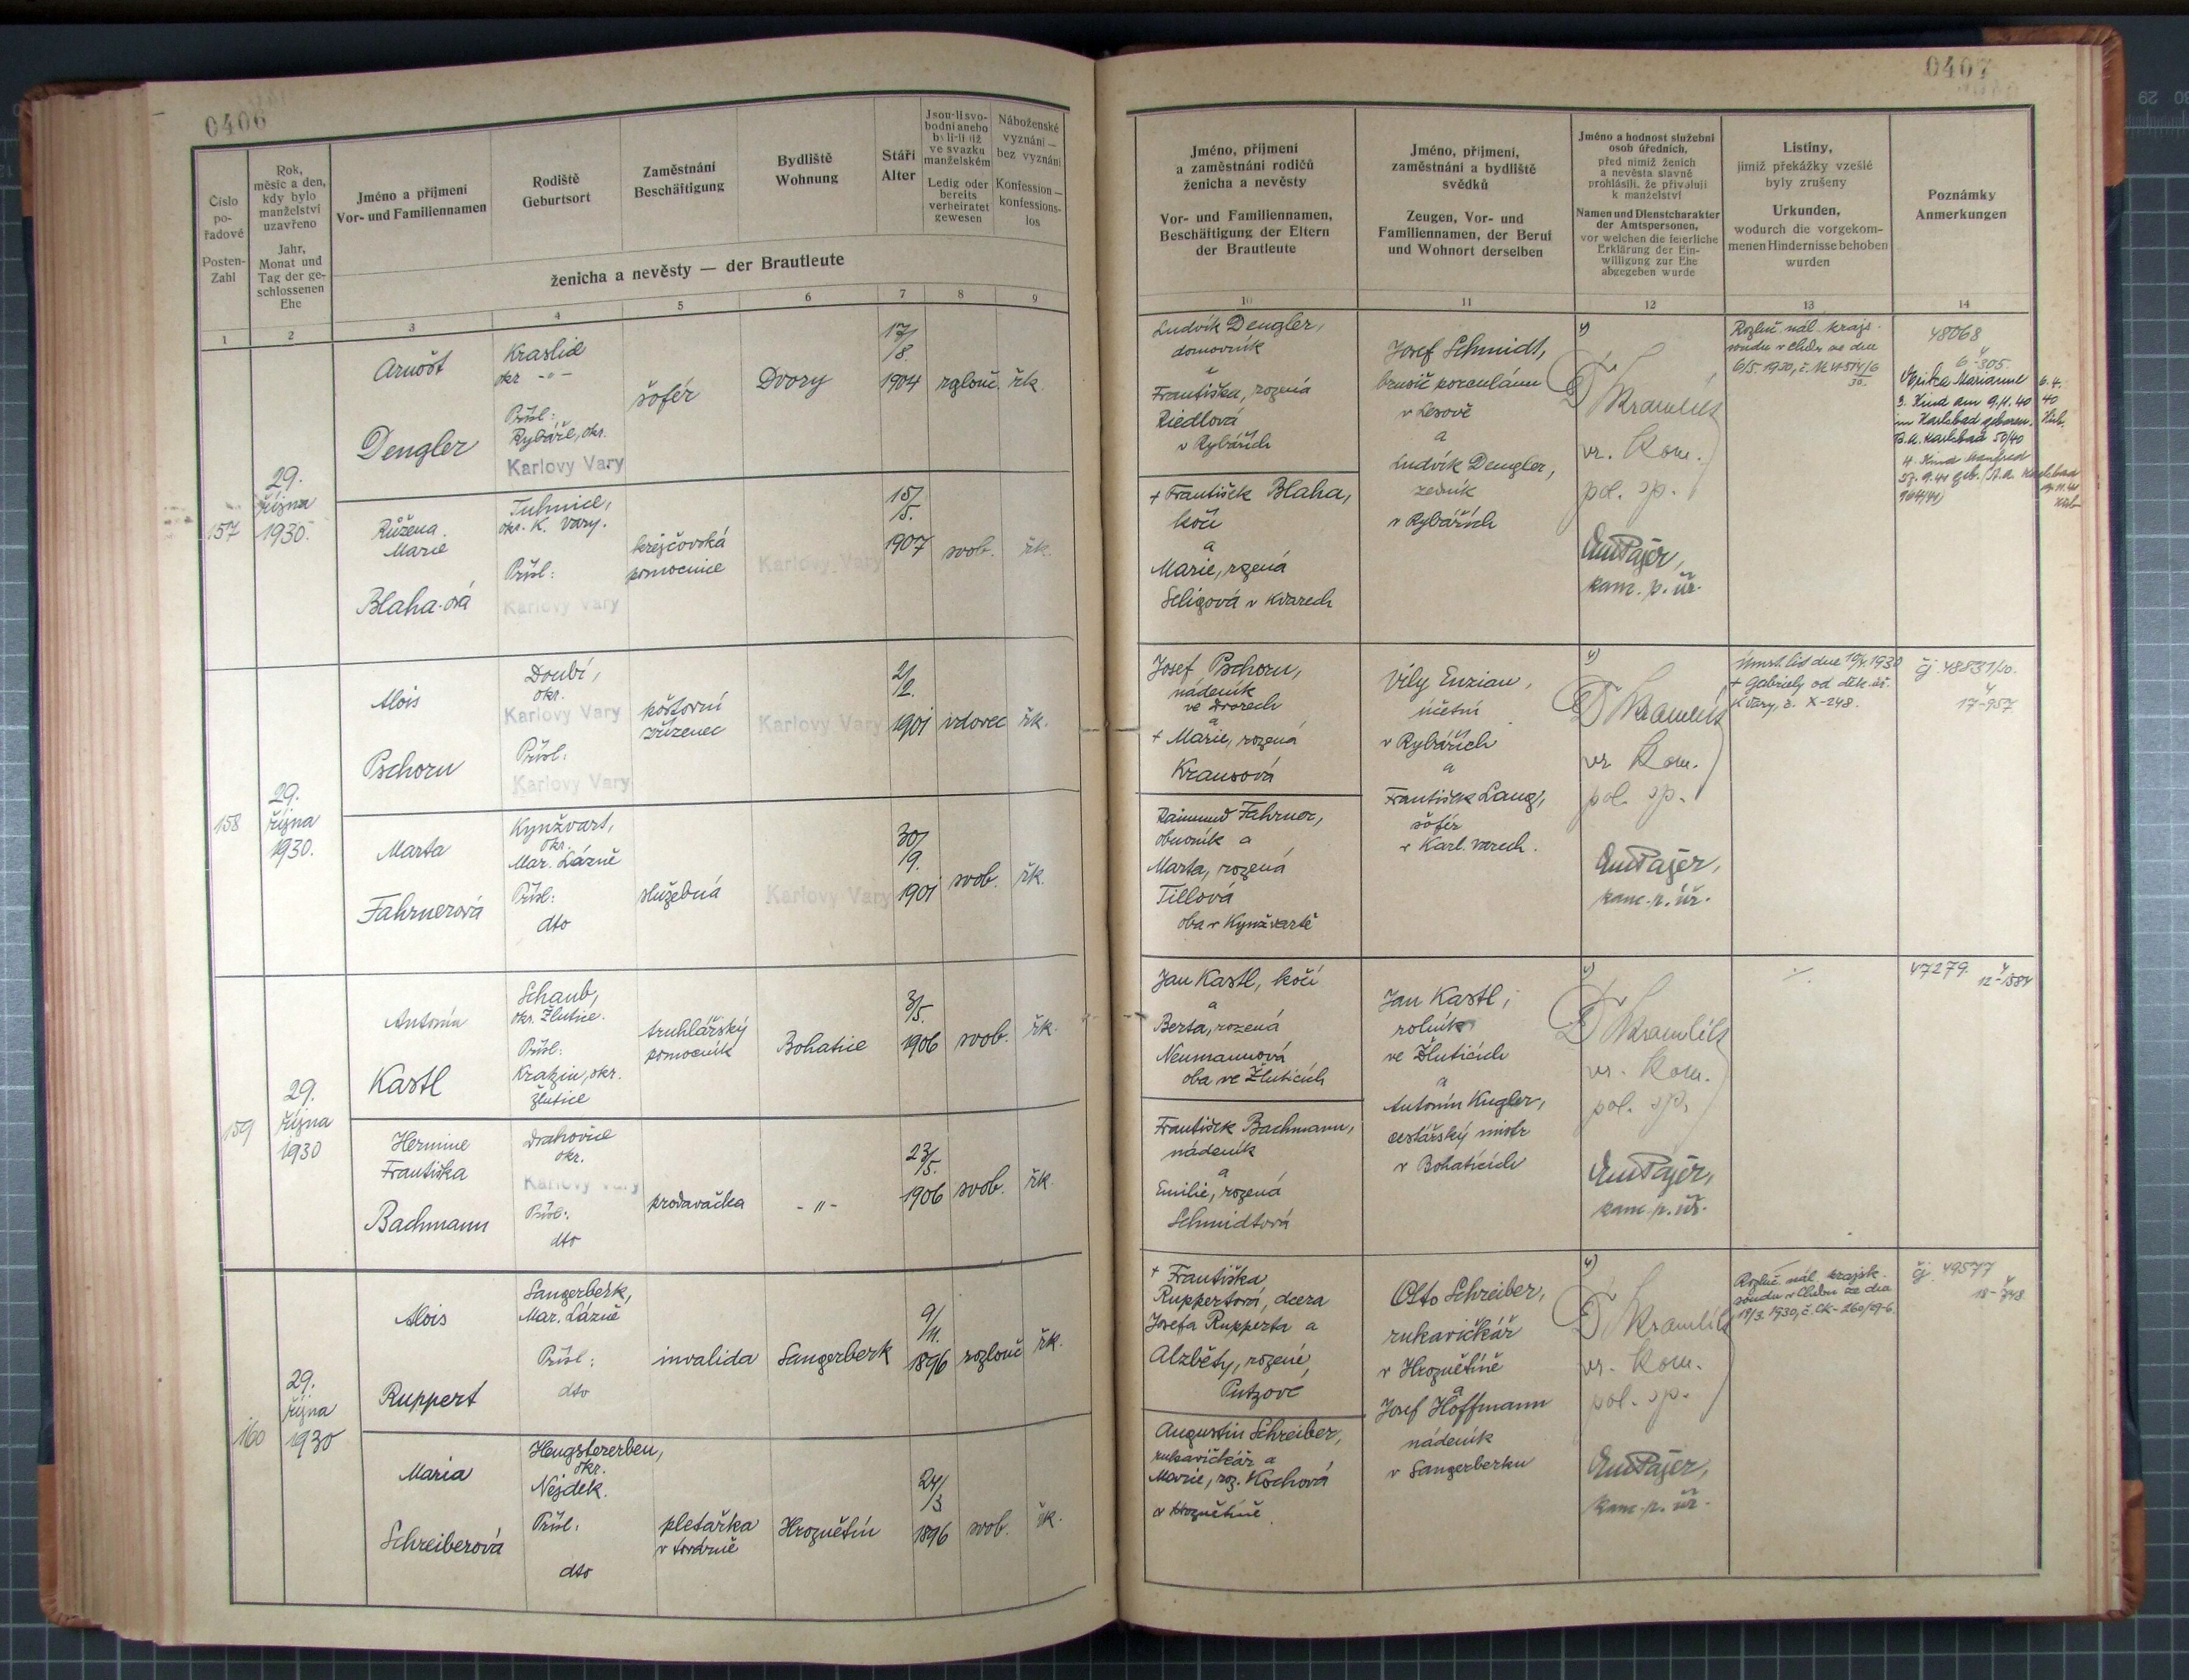 0406
Číslo
po-
řadové
Posten-
Zahl
Rok,
měsíc a den,
kdy bylo
manželství
uzavřeno
Jahr,
Monat und
Tag der ge-
schlossenen
Ehe
Jméno a příjmení
Vor- und Familiennamen
Rodiště
Geburtsort
Zaměstnání
Beschäftigung
Bydliště
Wohnung
Stáří
Alter
Jsou-li svo-
bodni anebo
byli-li již
ve svazku
manželském
Ledig oder
bereits
verheiratet
gewesen
Náboženské
vyznání —
bez vyznání
Konfession —
konfessions-
los
ženicha a nevěsty — der Brautleute
1 2 3 4 5 6 7 8 9
157
29.
října
1930.
Arnošt
Dengler
Kraslice
okr -"-
Přísl:
Rybáře, okr.
Karlovy Vary
šofér
Dvory
17/
/8
1904
rzlouč.
řk.
Růžena
Marie
Blaha-ová
Tuhnice,
okr. K. Vary.
Přísl:
Karlovy Vary
krejčovská
pomocnice
Karlovy Vary
15/
/5.
1907
svob.
řk.
158
29.
října
1930.
Alois
Pschorn
Doubí,
okr.
Karlovy Vary
Přísl:
Karlovy Vary
poštovní
zřízenec
Karlovy Vary
2/
/2.
1901
vdovec
řk.
Marta
Fahrnerová
Kynžvart,
okr.
Mar. Lázně
Přísl:
dto
služebná
Karlovy Vary
30/
/9.
1901
svob.
řk.
159
29.
října
1930
Antonín
Kastl
Schaub,
okr. Žlutice.
Přísl:
Kratzin, okr.
Žlutice
truhlářský
pomocník
Bohatice
3/5.
1906
svob.
řk.
Hermine
Františka
Bachmann
Drahovice
okr.
Karlovy Vary
Přísl:
dto
prodavačka
-"-
23/
/5.
1906
svob.
řk.
160
29.
října
1930
Alois
Ruppert
Sangerberk,
Mar. Lázně
Přísl:
dto
invalida
Sangerberk
9/
/11.
1896
rozlouč
řk.
Maria
Schreiberová
Hengstererben,
okr.
Nejdek.
Přísl:
dto
pletařka
v továrně
Hroznětín
24/
/3
1896
svob.
řk.
0407
Jméno, příjmení
a zaměstnání rodičů
ženicha a nevěsty
Vor- und Familiennamen,
Beschäftigung der Eltern
der Brautleute
Jméno, příjmení,
zaměstnání a bydliště
svědků
Zeugen, Vor- und
Familiennamen, der Beruf
und Wohnort derselben
Jméno a hodnost služební
osob úředních,
před nimiž ženich
a nevěsta slavně
prohlásili, že přivolují
k manželství
Namen und Dienstcharakter
der Amtspersonen,
vor welchen die feierliche
Erklärung der Ein-
willigung zur Ehe
abgegeben wurde
Listiny,
jimiž překážky vzešlé
byly zrušeny
Urkunden,
wodurch die vorgekom-
menen Hindernisse behoben
wurden
Poznámky
Anmerkungen
10 11 12 13 14
Ludvík Dengler,
domovník
a
Františka, rozená
Riedlová
v Rybářích
Josef Schmidt,
brusič porculánu
v Lesově
a
Ludvík Dengler,
zedník
v Rybářích
Kramliš
vr. kom.
pol. sp.
Em Pajer,
kanc. p. úř.
Rozluč. nál. krajs.
soudu v Chebu ze dne
48068
6-305.
3. Kind am 9.11.40
in Karlsbad geboren.
+ František Blaha,
kočí
a
Marie, rozená
Seligová v Kvarech
Josef Pschorn,
nádeník
ve Dvorech
a
+ Marie, rozená
Krausová
Vily Enzian,
účetní
v Rybářích
a
František Lang,
šofér
v Karl. Varech.
Kramliš
vr. kom.
pol. sp.
Em Pajer,
kanc. p. úř.
+ Gabriely od děk. úř.
K Vary, č. X-248.
čj. 48831/30.
17-957
Raimund Fahrner,
obuvník a
Marta, rozená
Tillová
oba v Kynžvartě
Jan Kastl, kočí
a
Berta, rozená
Neumannová
oba ve Žluticích
Jan Kastl,
rolník
ve Žluticích
a
Antonín Kugler,
cestářský mistr
v Bohaticích
Kramliš
vr. kom.
pol. sp.
Em Pajer,
kanc. p. úř.
47279.
12-1584
František Bachmann,
nádeník
a
Emilie, rozená
Schmidtová
+ Františka
Ruppertová, dcera
Josefa Rupperta a
Alzběty, rozené
Putzové
Otto Schreiber,
rukavičkář
v Hroznětíně
a
Josef Hoffmann
nádeník
v Sangerberku
Kramliš
vr. kom.
pol. sp.
Em Pajer,
kanc. p. úř.
Rozluč. nál. krajsk.
soudu v Chebu ze dne
18/3. 1930, č. Ck-260/29-6.
čj. 49577
18-748
Augustin Schreiber,
rukavičkář a
Marie, roz. Kochová
v Hroznětíně.